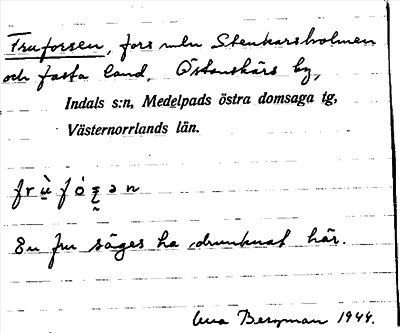 Fruforsen, fors mln Stenkarsholmen
och fasta land, Östanskärs by,
Indals s:n, Medelpads östra domsaga tg,
Västernorrlands län.
En fru säges ha drunknat här.
Bergman 1944.